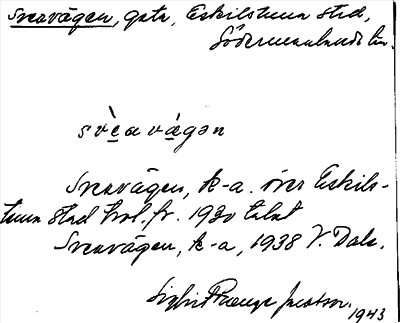 Sveavägen, gata, Eskilstuna stad,
Södermanlands län.
svèa vä̀gən
Sveavägen, k-a. över Eskils-
tuna stad kol. fr. 1930 talet
Sveavägen, k-a, 1938 V. Dala.
Sigfrid Jacobson.
1943